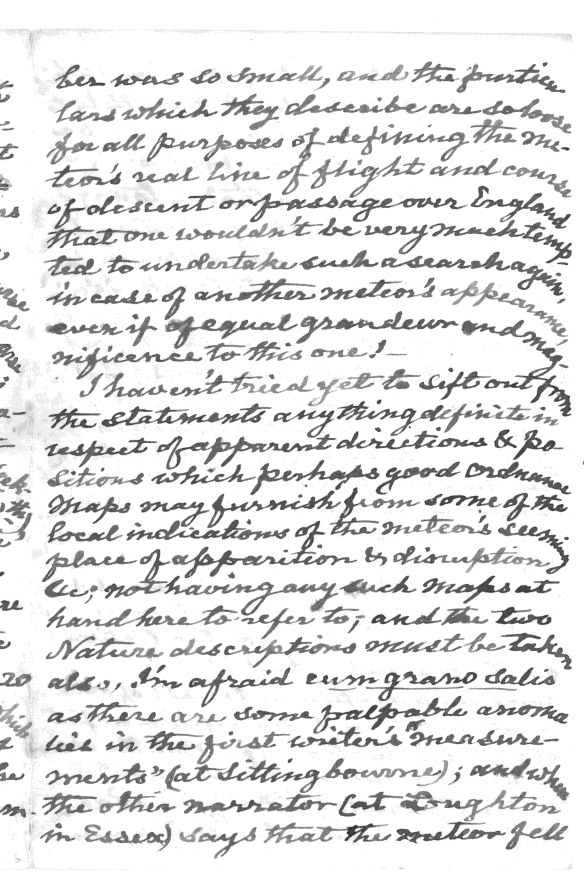 ber was so small, and the particu
lars which they describe are so loose
for all purposes of defining the me-
teor's real line of flight and course
of descent or passage over England
that one wouldn't be very much temp-
ted to undertake such a search again,
in case of another meteor's appearance,
even if of equal grandeur and mag-
nificence to this one! —
I haven't tried yet to sift out from
the statements anything definite in
respect of apparent directions & po
sitions which perhaps good Ordnance
Maps may furnish from some of the
local indications of the meteor's seeming
place of apparition & disruption
&c; not having any such Maps at
hand here to refer to; and the two
Nature descriptions must be taken
also, I'm afraid cum grano salis
as there are some palpable anoma
lies in the first writer's "measure-
ments" (at Sittingbourne); and when
the other narrator (at Loughton
in Essex) says that the meteor fell